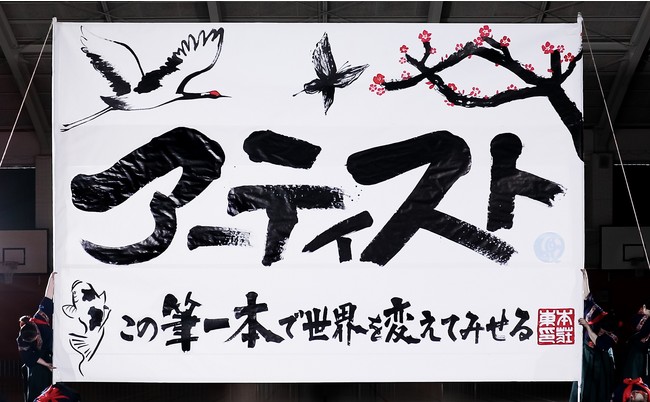 アーティスト
この筆一本で世界を変えてみせる
本荘
東